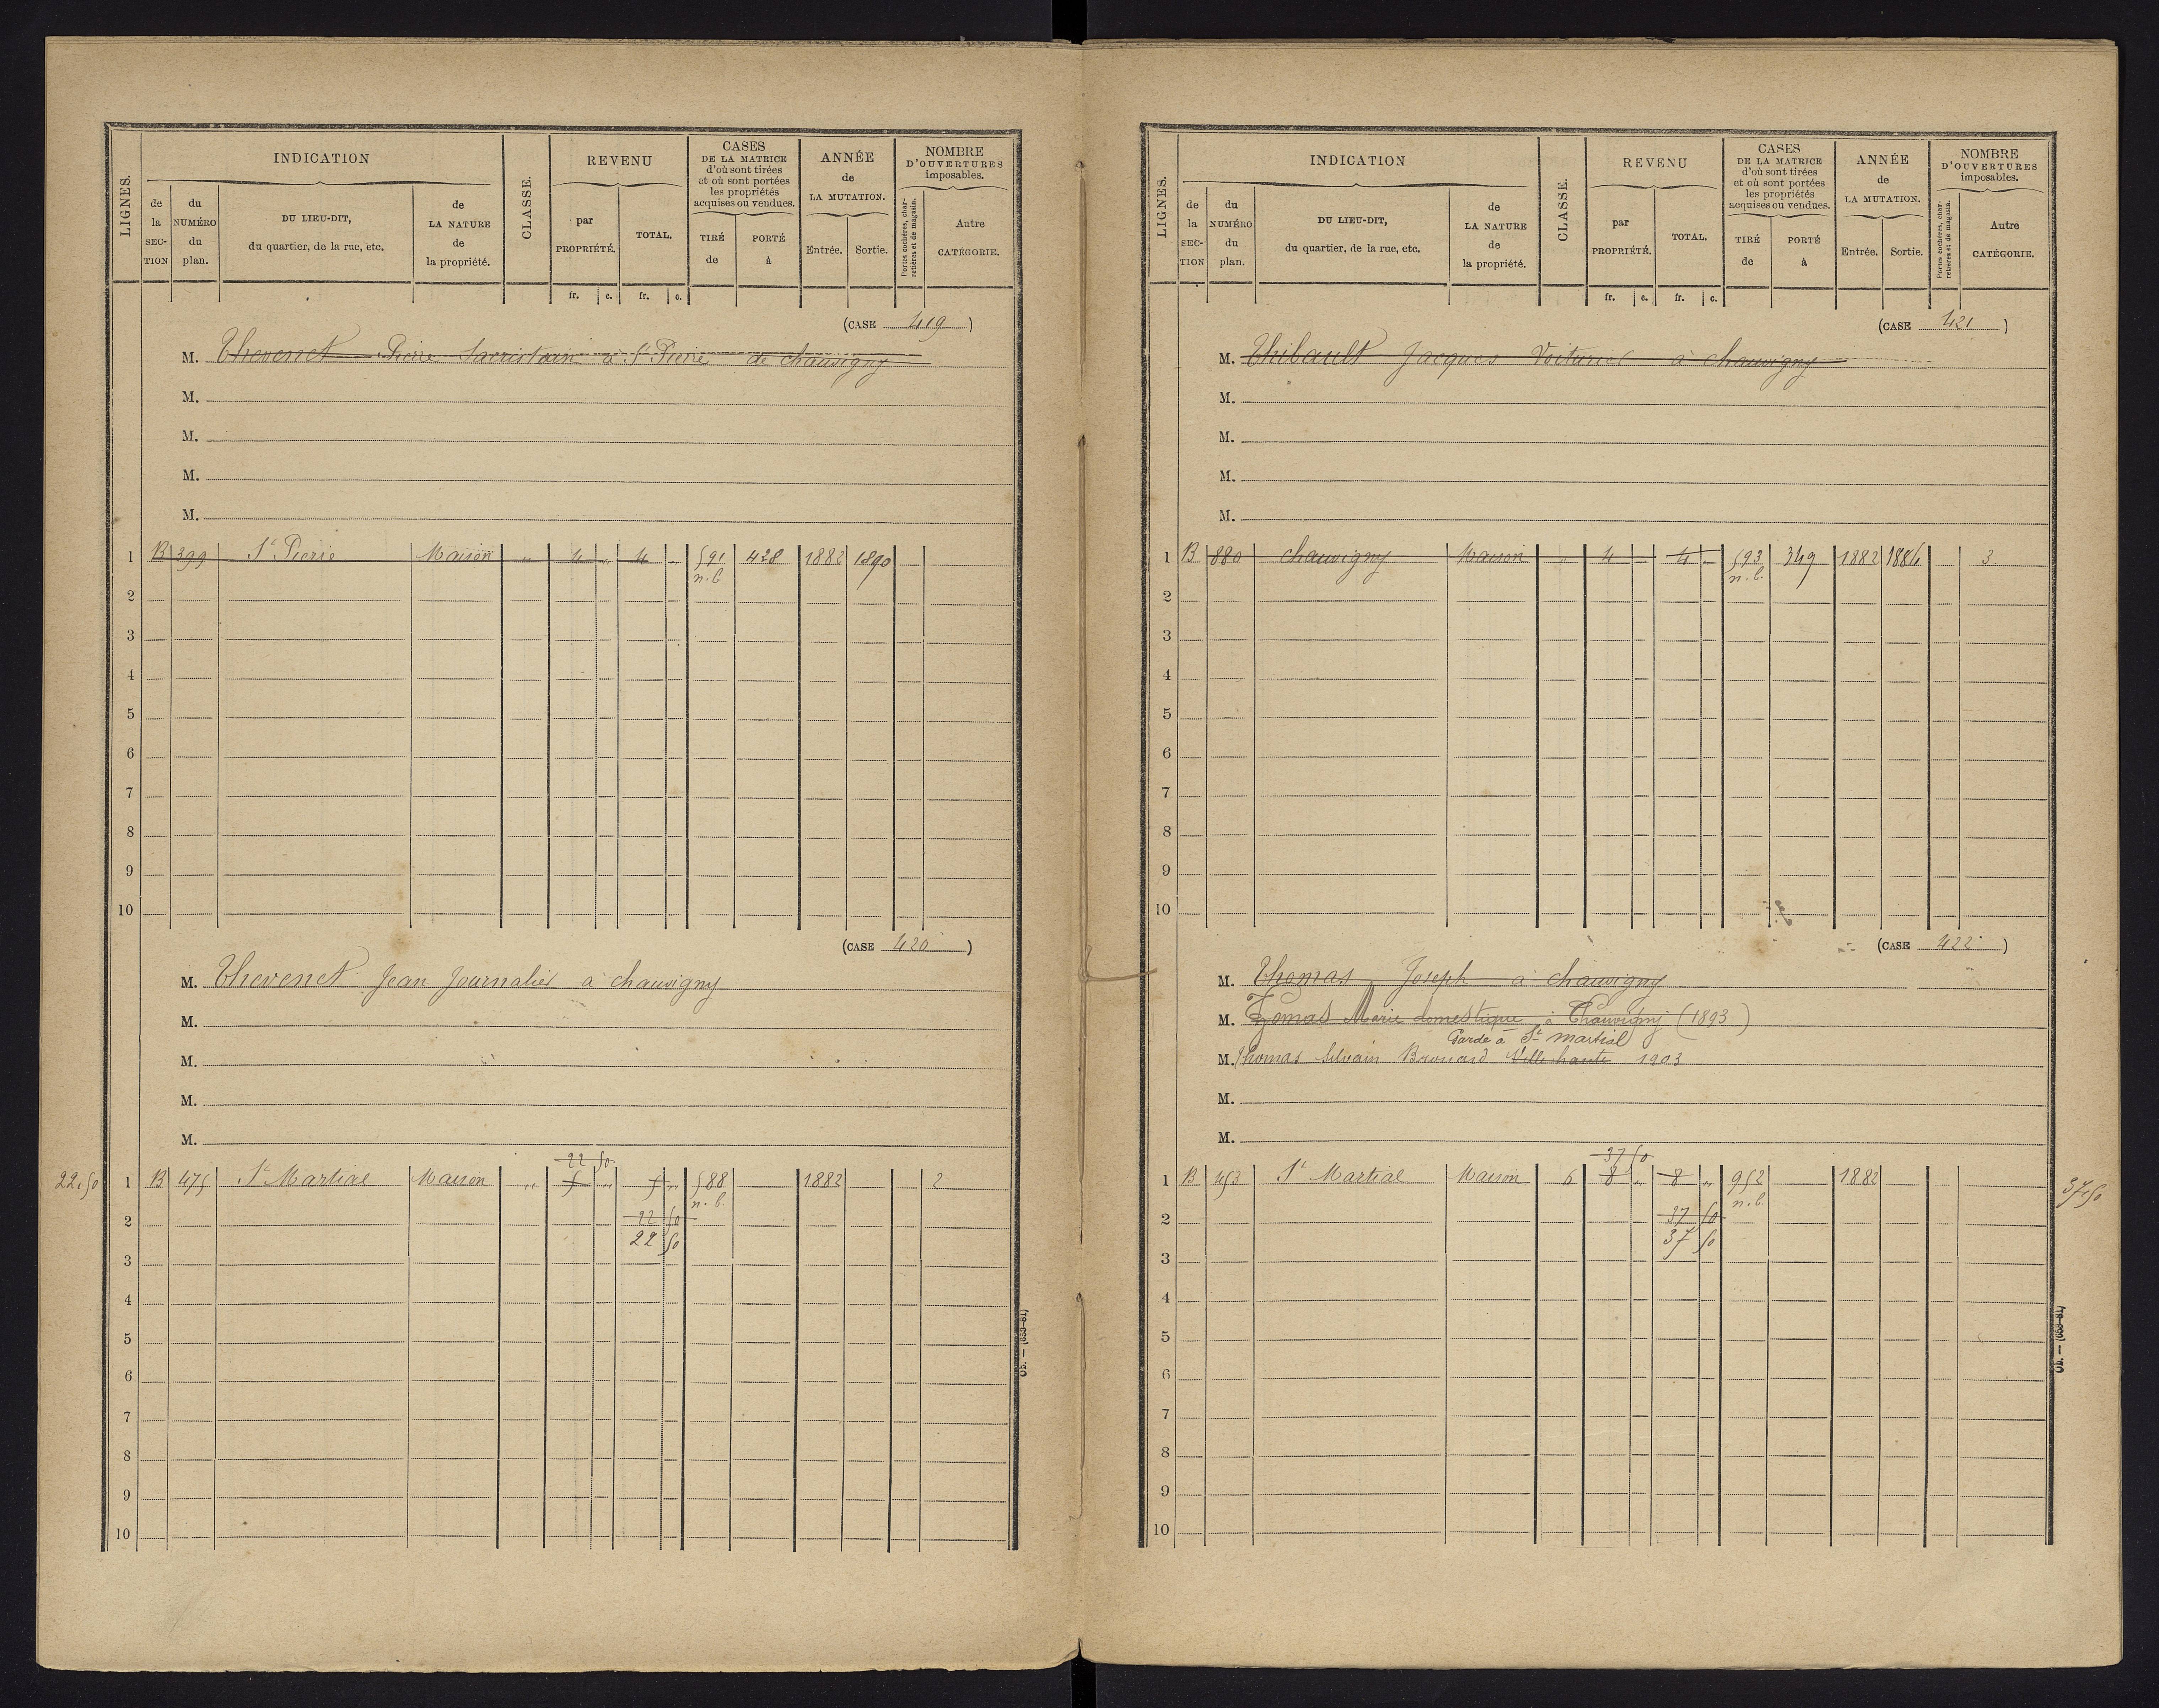 LIGNES.
INDICATION
de la SECTION
du NUMÉRO du plan.
DU LIEU-DIT, du quartier, de la rue, etc.
de LA NATURE de la propriété.
CLASSE.
REVENU
par PROPRIÉTÉ.
TOTAL.
fr. c. fr. c.
CASES DE LA MATRICE d'où sont tirées et où sont portées les propriétés acquises ou vendues.
TIRÉ de
PORTÉ à
ANNÉE de LA MUTATION.
Entrée. Sortie.
NOMBRE D'OUVERTURES imposables.
Portes cochères, charretières et de magasin.
Autre CATÉGORIE.
(CASE 419)
M. Thevenet Pierre Sacristain à St Pierre de chauvigny
M.
M.
M.
M.
1 B 399 St Pierre Maison „ 4 „ 4 „ 591 428 1882 1890
n.b.
2
3
4
5
6
7
8
9
10
(CASE 420)
M. Thevenet Jean Journalier à chauvigny
M.
M.
M.
M.
22 50
22,50 1 B 475 St Martial Maison „ 5 „ 5 „ 588 1882 2
n.b.
2 22 50
22 50
3
4
5
6
7
8
9
10
Ob. — (653-81)
LIGNES.
INDICATION
de la SECTION
du NUMÉRO du plan.
DU LIEU-DIT, du quartier, de la rue, etc.
de LA NATURE de la propriété.
CLASSE.
REVENU
par PROPRIÉTÉ.
TOTAL.
fr. c. fr. c.
CASES DE LA MATRICE d'où sont tirées et où sont portées les propriétés acquises ou vendues.
TIRÉ de
PORTÉ à
ANNÉE de LA MUTATION.
Entrée. Sortie.
NOMBRE D'OUVERTURES imposables.
Portes cochères, charretières et de magasin.
Autre CATÉGORIE.
(CASE 421)
M. Thibault Jacques Voiturier à chauvigny
M.
M.
M.
M.
1 B 880 chauvigny Maison „ 4 „ 4 „ 593 349 1882 1886 3
n.b.
2
3
4
5
6
7
8
9
10
(CASE 422)
M. Thomas Joseph à chauvigny
M. Thomas Marie domestique à Chauvigny (1893)
Garde à St martial
M. Thomas Silvain Ville haute 1903
M.
M.
37 50
1 B 453 St Martial Maison 6 8 „ 8 „ 952 1882 37,50
n.b.
2 37 50
37 50
3
4
5
6
7
8
9
10
Ob. — (653-81)